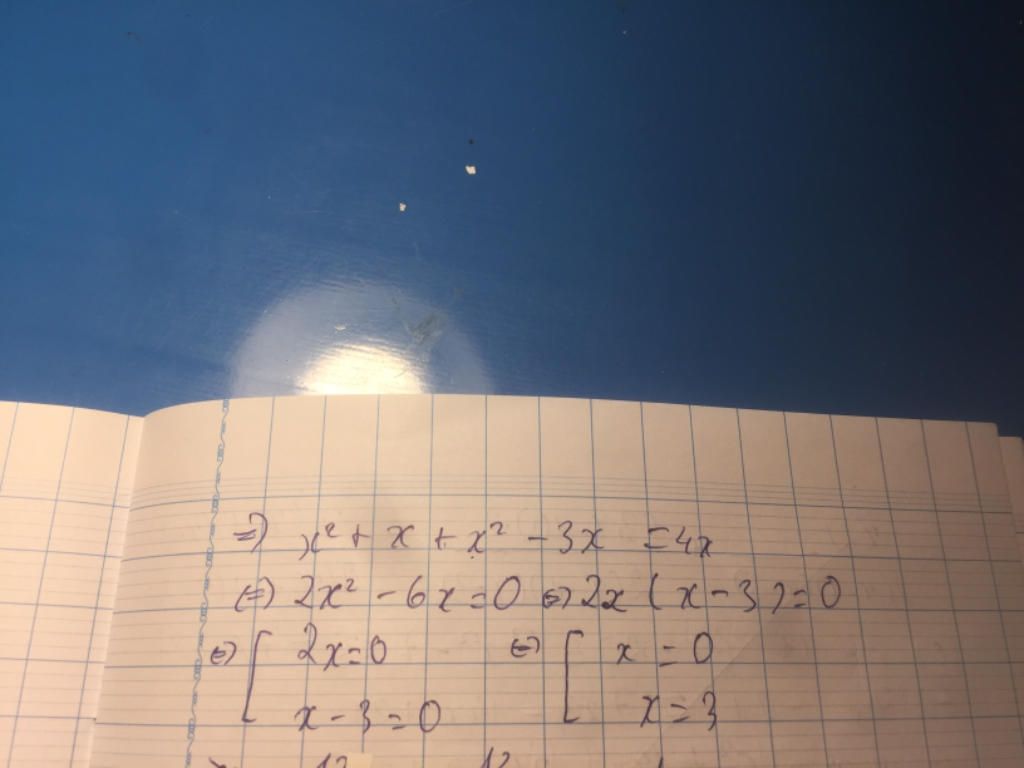 => x² + x + x² - 3x = 4x
<=> 2x² - 6x = 0 <=> 2x ( x - 3 ) = 0
<=> [ 2x = 0 <=> [ x = 0
x - 3 = 0 x = 3